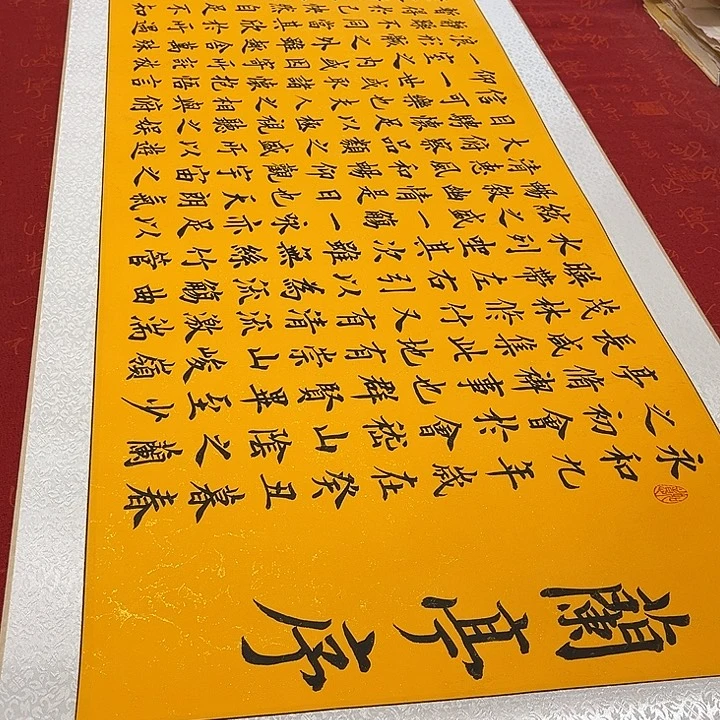 蘭亭序
永和九年歲在癸丑暮春
之初會於會稽山陰之蘭
亭脩禊事也群賢畢至少
長咸集此地有崇山峻嶺
茂林脩竹又有清流激湍
暎帶左右引以為流觴曲
水列坐其次雖無絲竹管
絃之盛一觴一詠亦足以
暢敘幽情是日也天朗氣
清惠風和暢仰觀宇宙之
大俯察品類之盛所以遊
目騁懷足以極視聽之娛
信可樂也夫人之相與俯
仰一世或取諸懷抱悟言
一室之內或因寄所託放
浪形骸之外雖趣舍萬殊
靜躁不同當其欣於所遇